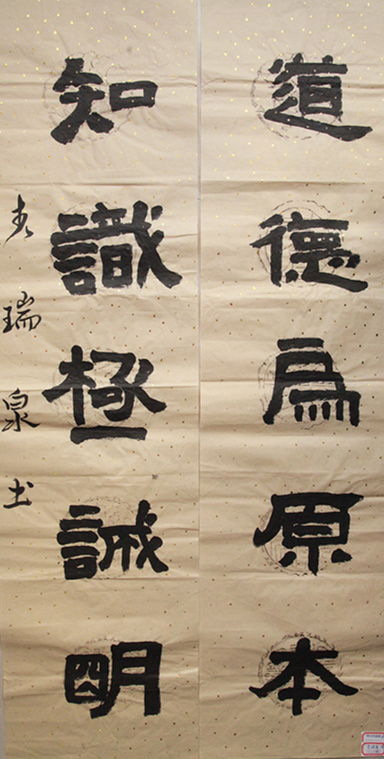 道德為原本
知識極誠明
瑞泉